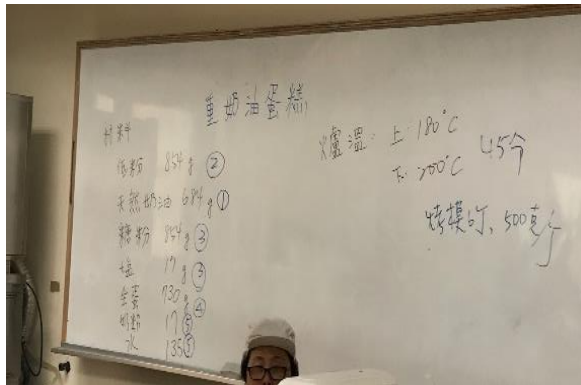 重奶油蛋糕
材料
低粉 854g ②
天然奶油 684g ①
糖粉 854g ③
塩 17g ③
全蛋 730g ④
奶粉 17 ⑤
水 135 ⑤
爐溫: 上: 180°C
下: 200°C
45分
烤模 500克